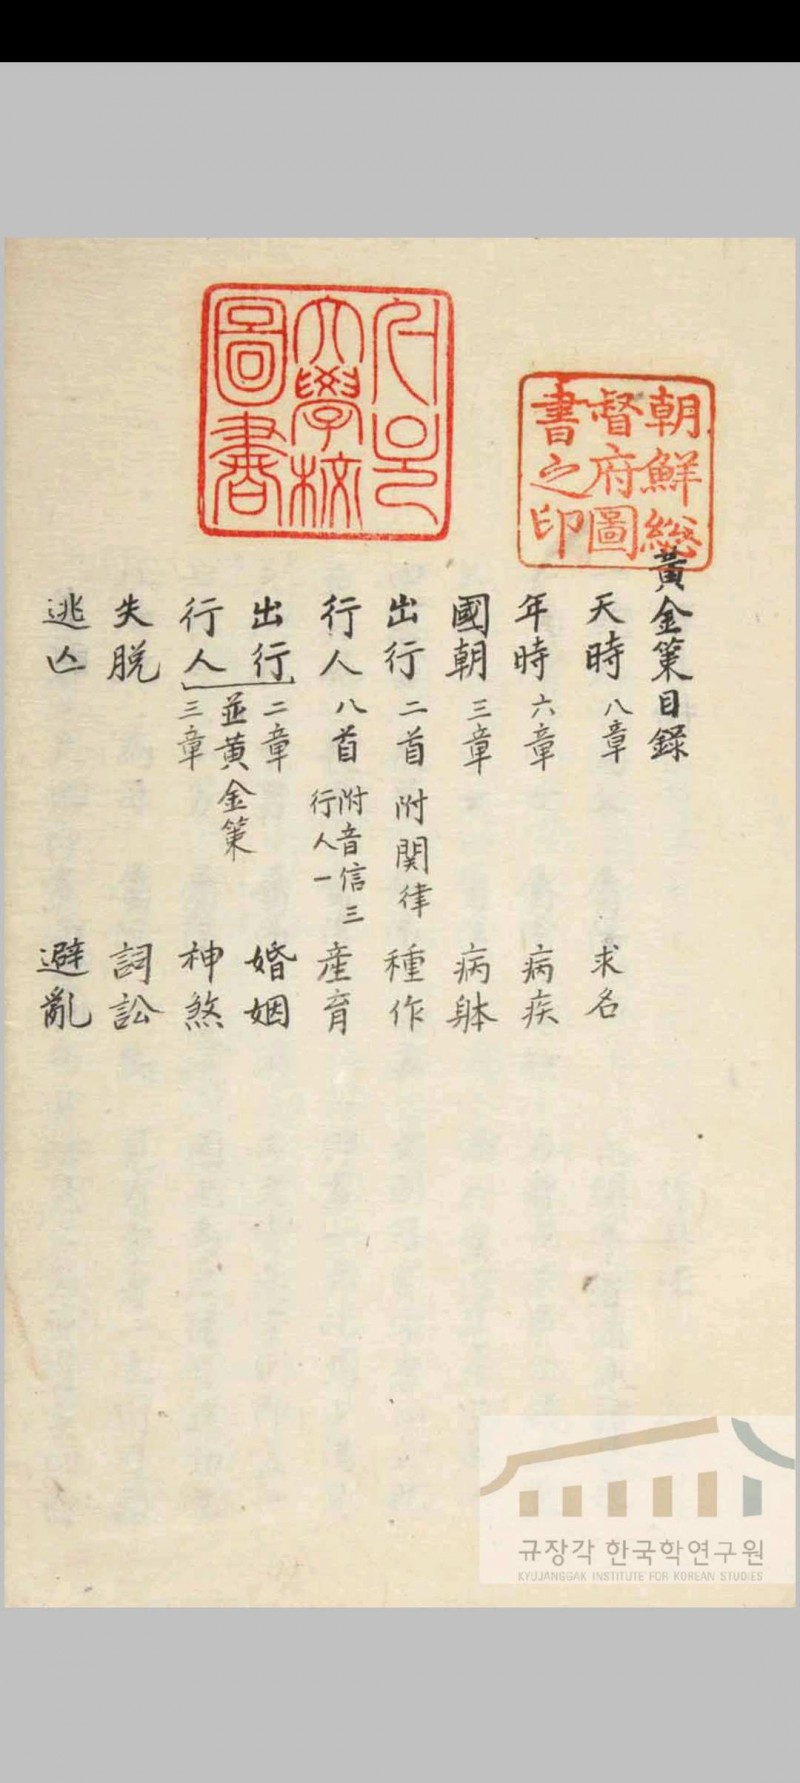 朝鮮総
督府圖
書之印
서울
大學校
圖書
黃金策目錄
天時 八章 求名
年時 六章 病疾
國朝 三章 病躰
出行 二首 附関律 種作
行人 八首 附音信三 行人一 產育
出行 二章 婚姻
並黃金策
行人 三章 神煞
失脫 詞訟
逃亾 避亂
규장각 한국학연구원
KYUJANGGAK INSTITUTE FOR KOREAN STUDIES